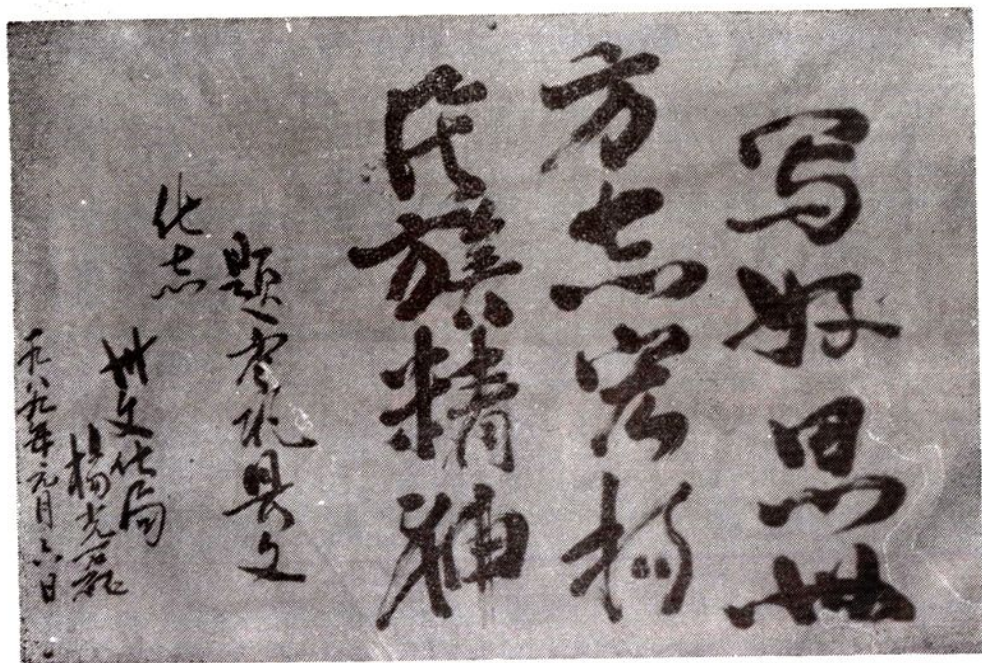 写好思州
方志宏扬
民族精神
题岑巩县文
化志
州文化局
楊光
一九八九年元月六日